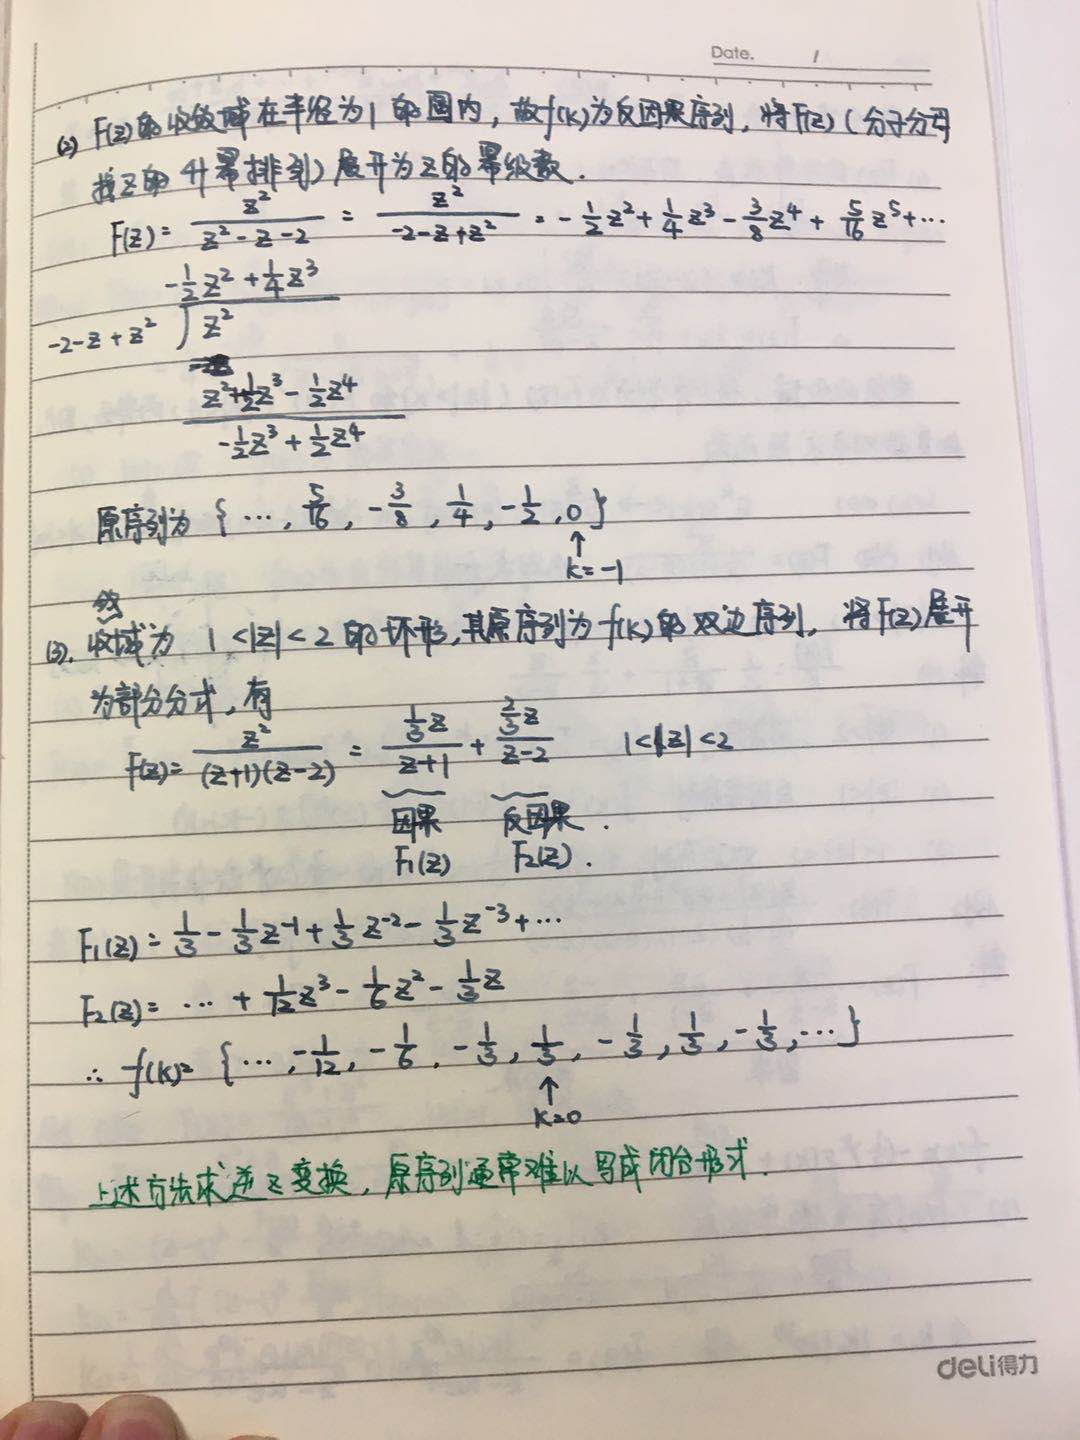 Date. /
(2) F(z)的收敛域在半径为1的圆内,故f(k)为反因果序列,将F(z)(分子分母
按z的升幂排列)展开为z的幂级数.
F(z)= z²/(z²-z-2) = z²/(-2-z+z²) = -1/2z²+1/4z³-3/8z⁴+5/16z⁵+⋯
-1/2z²+1/4z³
-2-z+z² ) z²
z²+1/2z³-1/2z⁴
-1/2z³+1/2z⁴
原序列为 {⋯, 5/16, -3/8, 1/4, -1/2, 0}
↑
k=-1
(3). 收敛域为 1<|z|<2的环形,其原序列为f(k)的双边序列, 将F(z)展开
为部分分式,有
F(z)= z²/((z+1)(z-2)) = (1/3z)/(z+1) + (2/3z)/(z-2) 1<|z|<2
因果 反因果.
F₁(z) F₂(z).
F₁(z)= 1/3-1/3z⁻¹+1/3z⁻²-1/3z⁻³+⋯
F₂(z)= ⋯+1/12z³-1/6z²-1/3z
∴ f(k)= {⋯, -1/12, -1/6, -1/3, 1/3, -1/3, 1/3, -1/3, ⋯}
↑
k=0
上述方法求逆z变换,原序列通常难以写成闭合形式.
deli得力